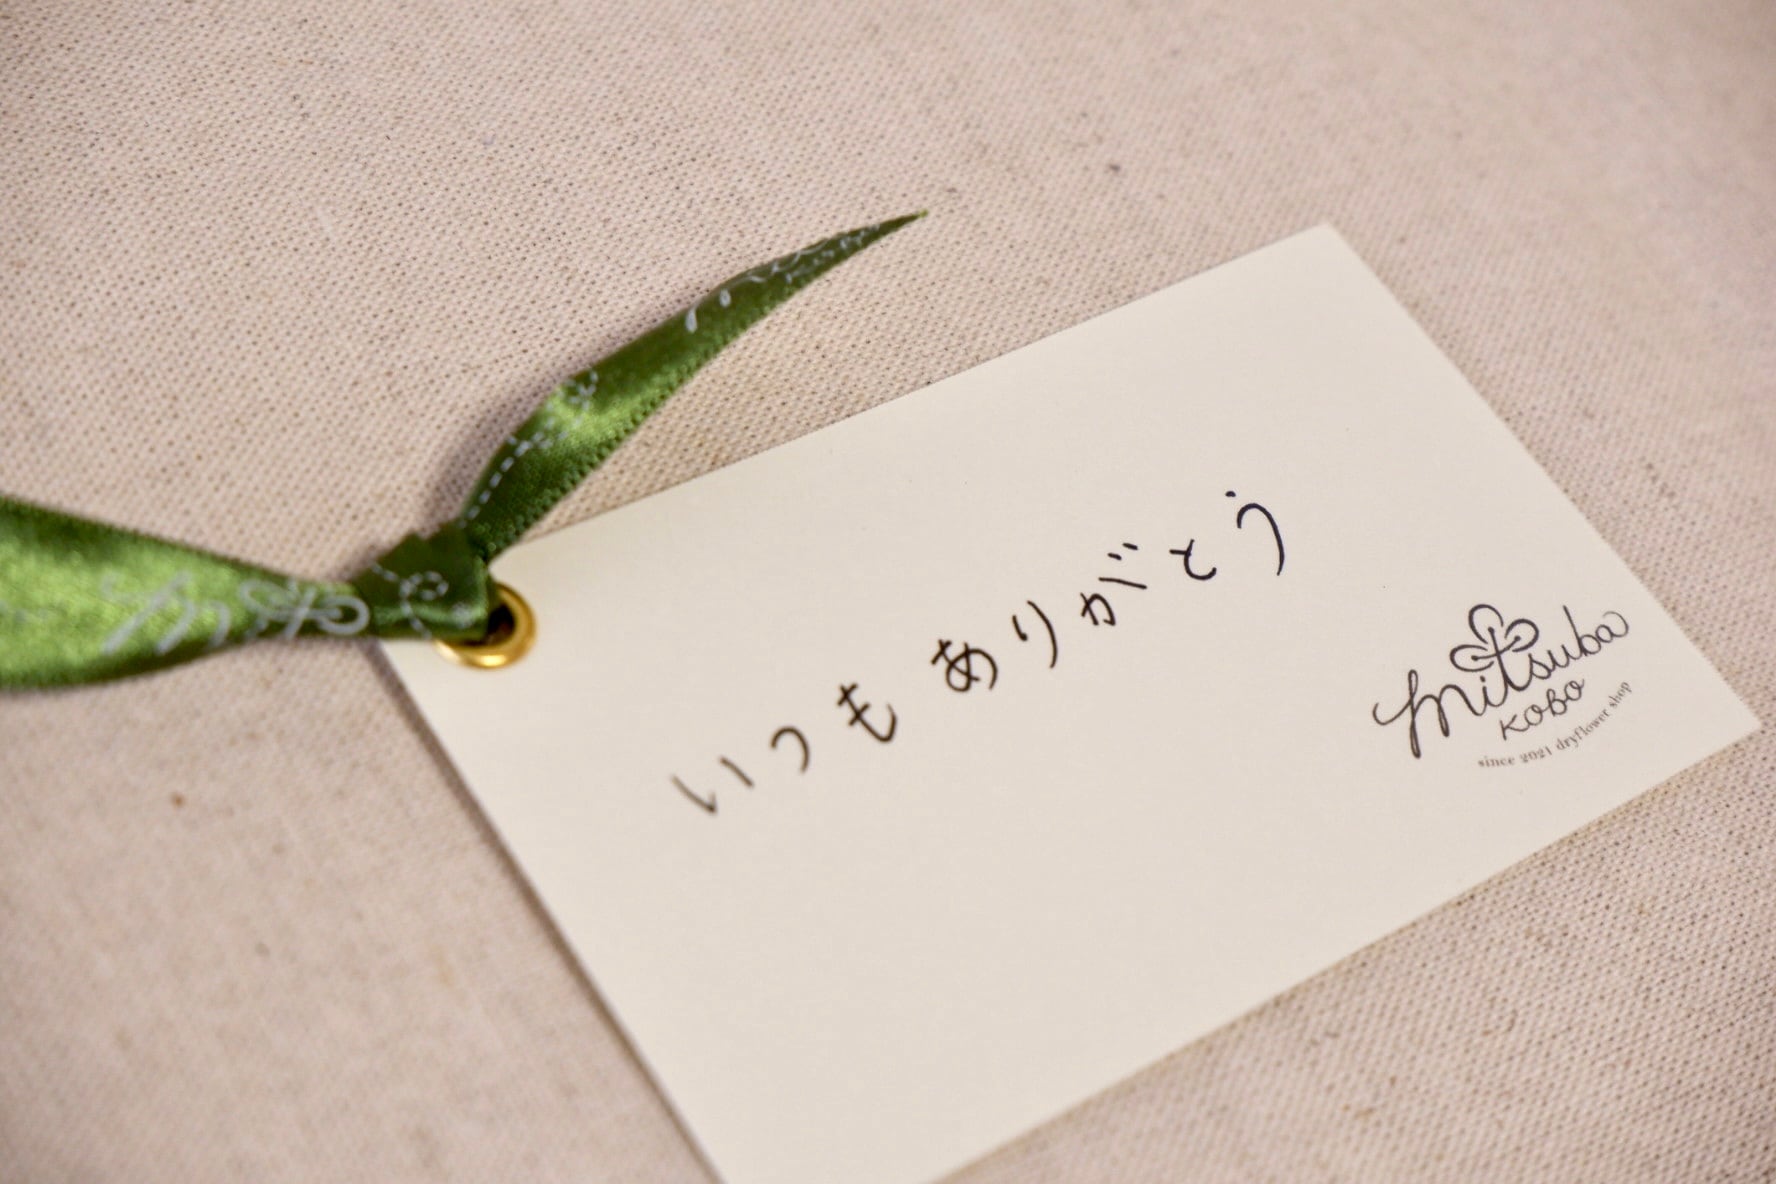 いつもありがとう
mitsuba
KOBO
since 2021 dryflower shop